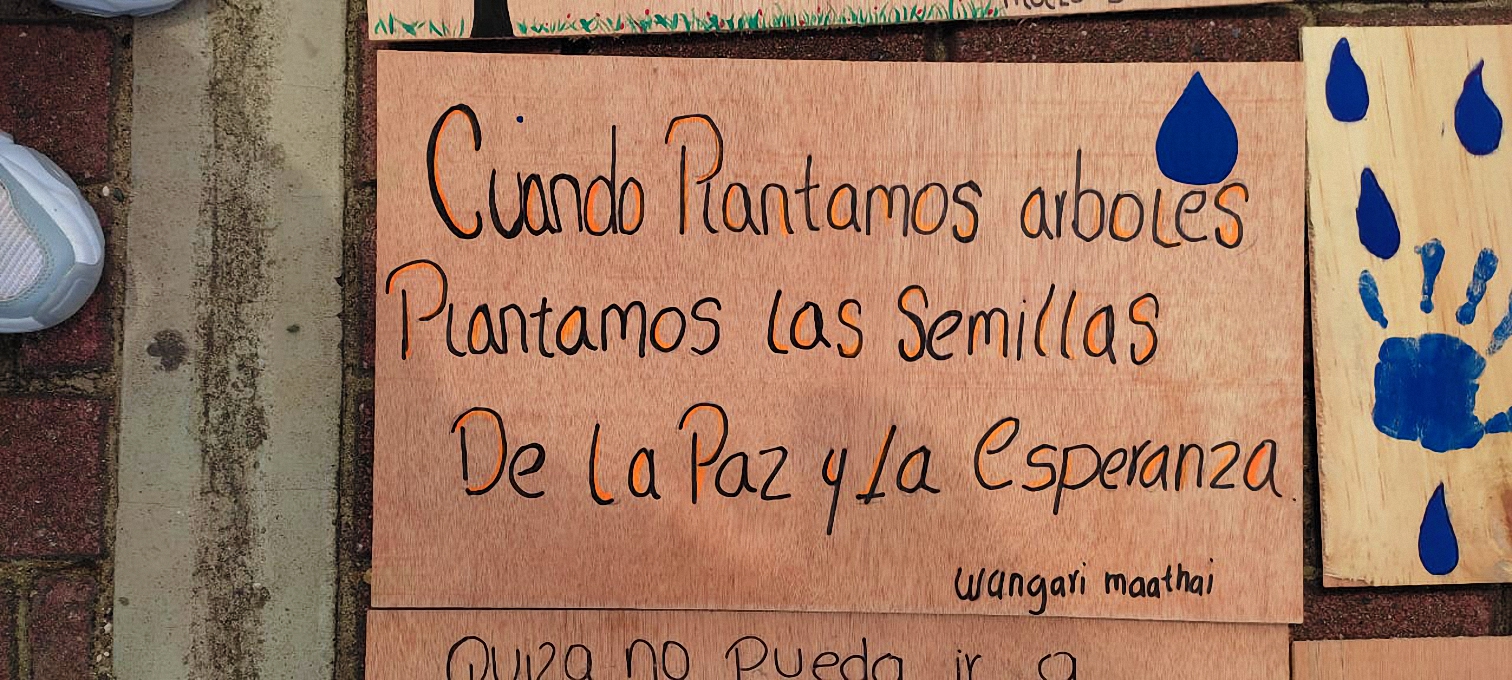 Cuando Plantamos arboles
Plantamos las Semillas
De la Paz y la Esperanza.
wangari maathai
Quiza no pueda ir a